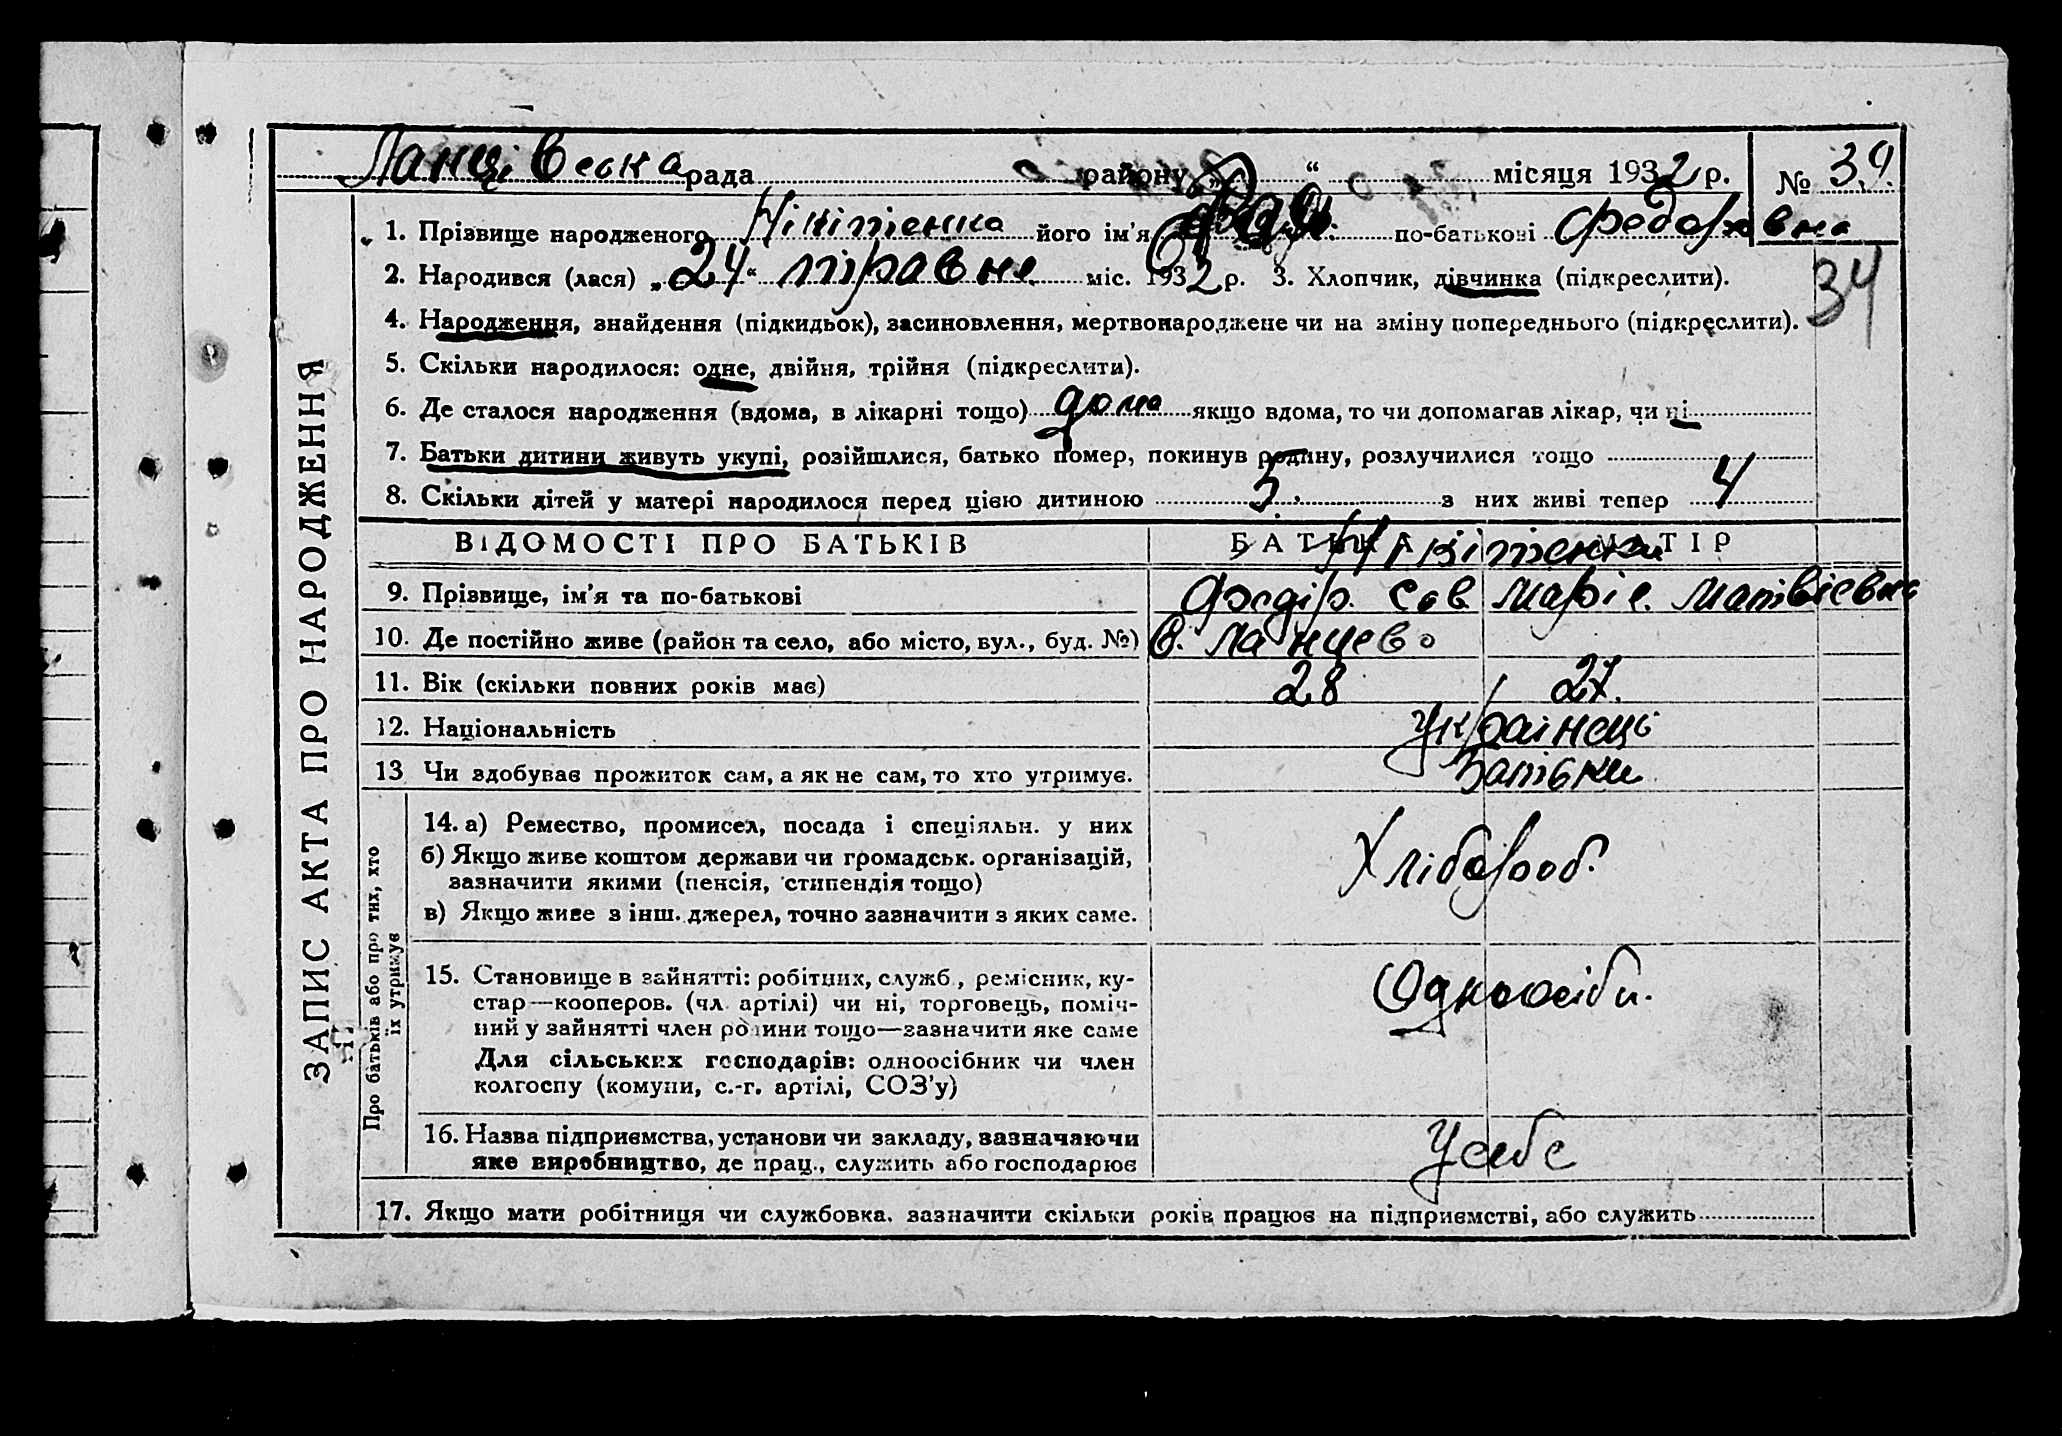 Ланцівська рада району „ “ місяця 1932 р. № 34
1. Прізвище народженого Нікітенко його ім'я по-батькові Федоровна
2. Народився (лася) „24“ травня міс. 1932 р. 3. Хлопчик, дівчинка (підкреслити).
34
4. Народження, знайдення (підкидьок), засиновлення, мертвонароджене чи на зміну попереднього (підкреслити).
5. Скільки народилося: одне, двійня, трійня (підкреслити).
6. Де сталося народження (вдома, в лікарні тощо) дома якщо вдома, то чи допомагав лікар, чи ні
7. Батьки дитини живуть укупі, розійшлися, батько помер, покинув родину, розлучилися тощо
8. Скільки дітей у матері народилося перед цією дитиною 5. з них живі тепер 4
ЗАПИС АКТА ПРО НАРОДЖЕННЯ
ВІДОМОСТІ ПРО БАТЬКІВ БАТЬКА МАТІР
Нікітенки
9. Прізвище, ім'я та по-батькові Федір. Сав Маріе. Матвіевна
10. Де постійно живе (район та село, або місто, вул., буд. №) С. Ланцево
11. Вік (скільки повних років має) 28 27.
12. Національність Українеці
13 Чи здобуває прожиток сам, а як не сам, то хто утримує. Батьки
Про батьків або про тих, хто
їх утримує
14. а) Ремество, промисел, посада і спеціяльн. у них
б) Якщо живе коштом держави чи громадськ. організацій,
зазначити якими (пенсія, стипендія тощо)
в) Якщо живе з інш. джерел, точно зазначити з яких саме.
Хлібороб.
15. Становище в зайнятті: робітник, служб., ремісник, ку-
стар—кооперов. (чл. артілі) чи ні, торговець, поміч-
ний у зайнятті член родини тощо—зазначити яке саме
Для сільських господарів: одноосібник чи член
колгоспу (комуни, с.-г. артілі, СОЗ'у)
Одноосіби.
16. Назва підприємства, установи чи закладу, зазначаючи
яке виробництво, де прац., служить або господарює
У себе
17. Якщо мати робітниця чи службовка, зазначити скільки років працює на підприємстві, або служить